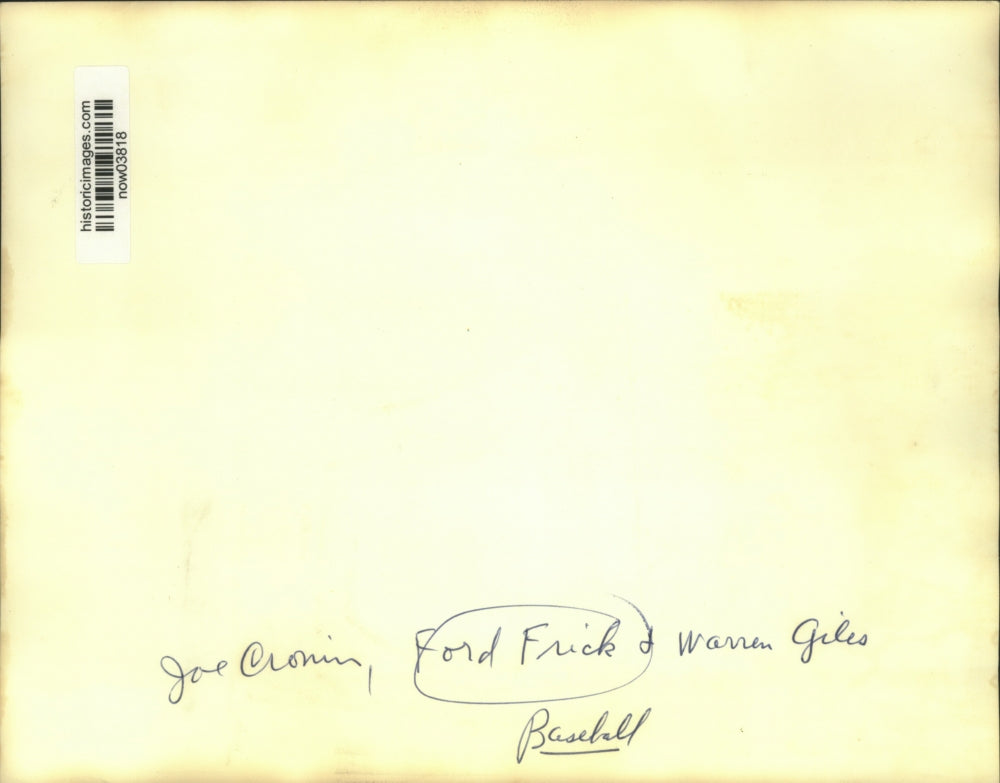 historicimages.com
now03818
Joe Cronin, Ford Frick & Warren Giles
Baseball